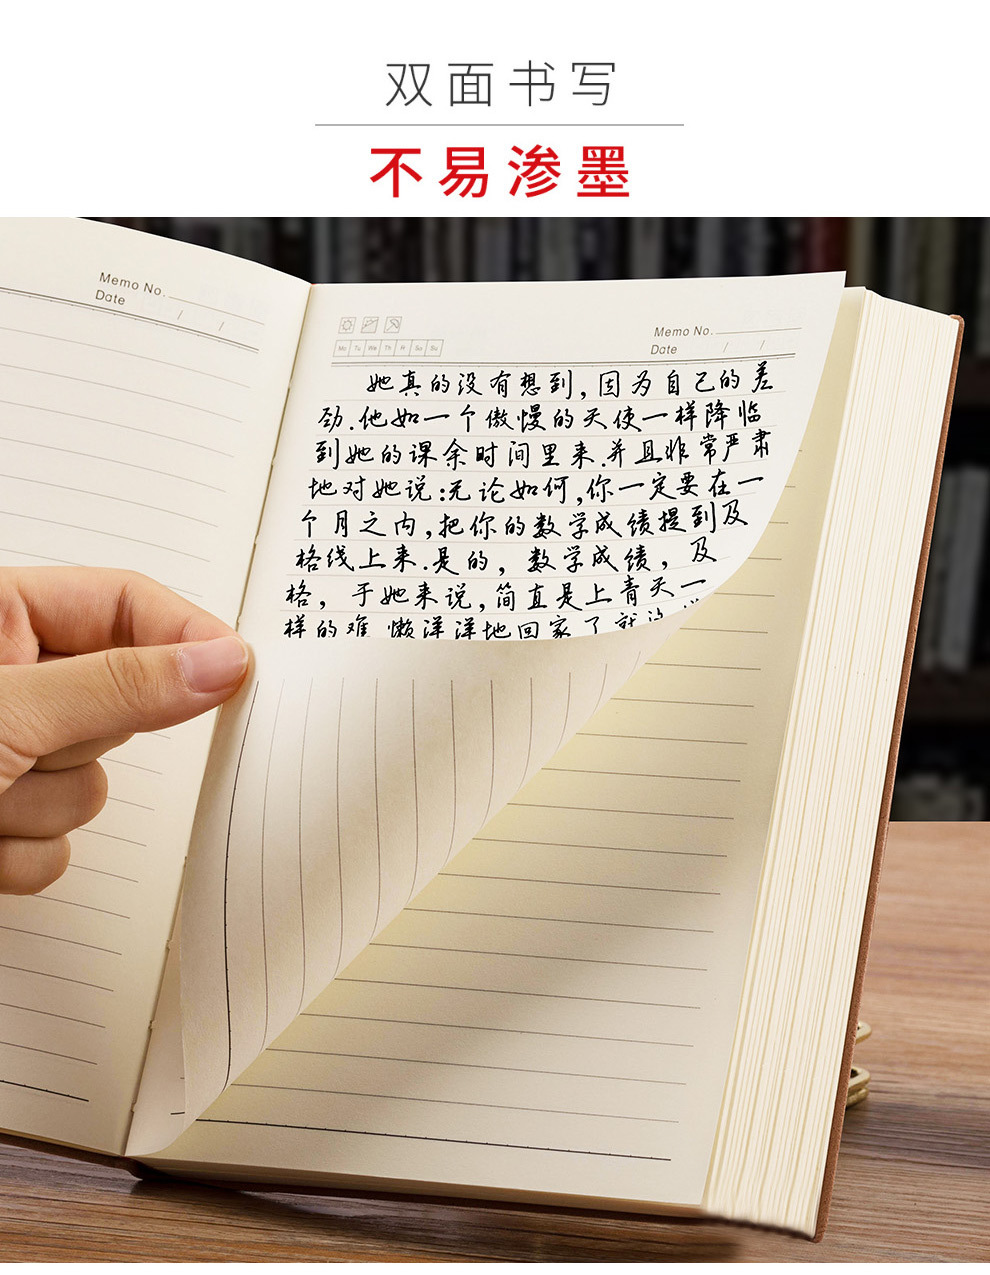 双面书写
不易渗墨
Memo No.
Date / /
Memo No.
Mo Tu We Th Fr Sa Su
Date / /
她真的没有想到,因为自己的差
劲.他如一个傲慢的天使一样降临
到她的课余时间里来.并且非常严肃
地对她说:无论如何,你一定要在一
个月之内,把你的数学成绩提到及
格线上来.是的,数学成绩,及
格,于她来说,简直是上青天一
样的难 懒洋洋地回家了就